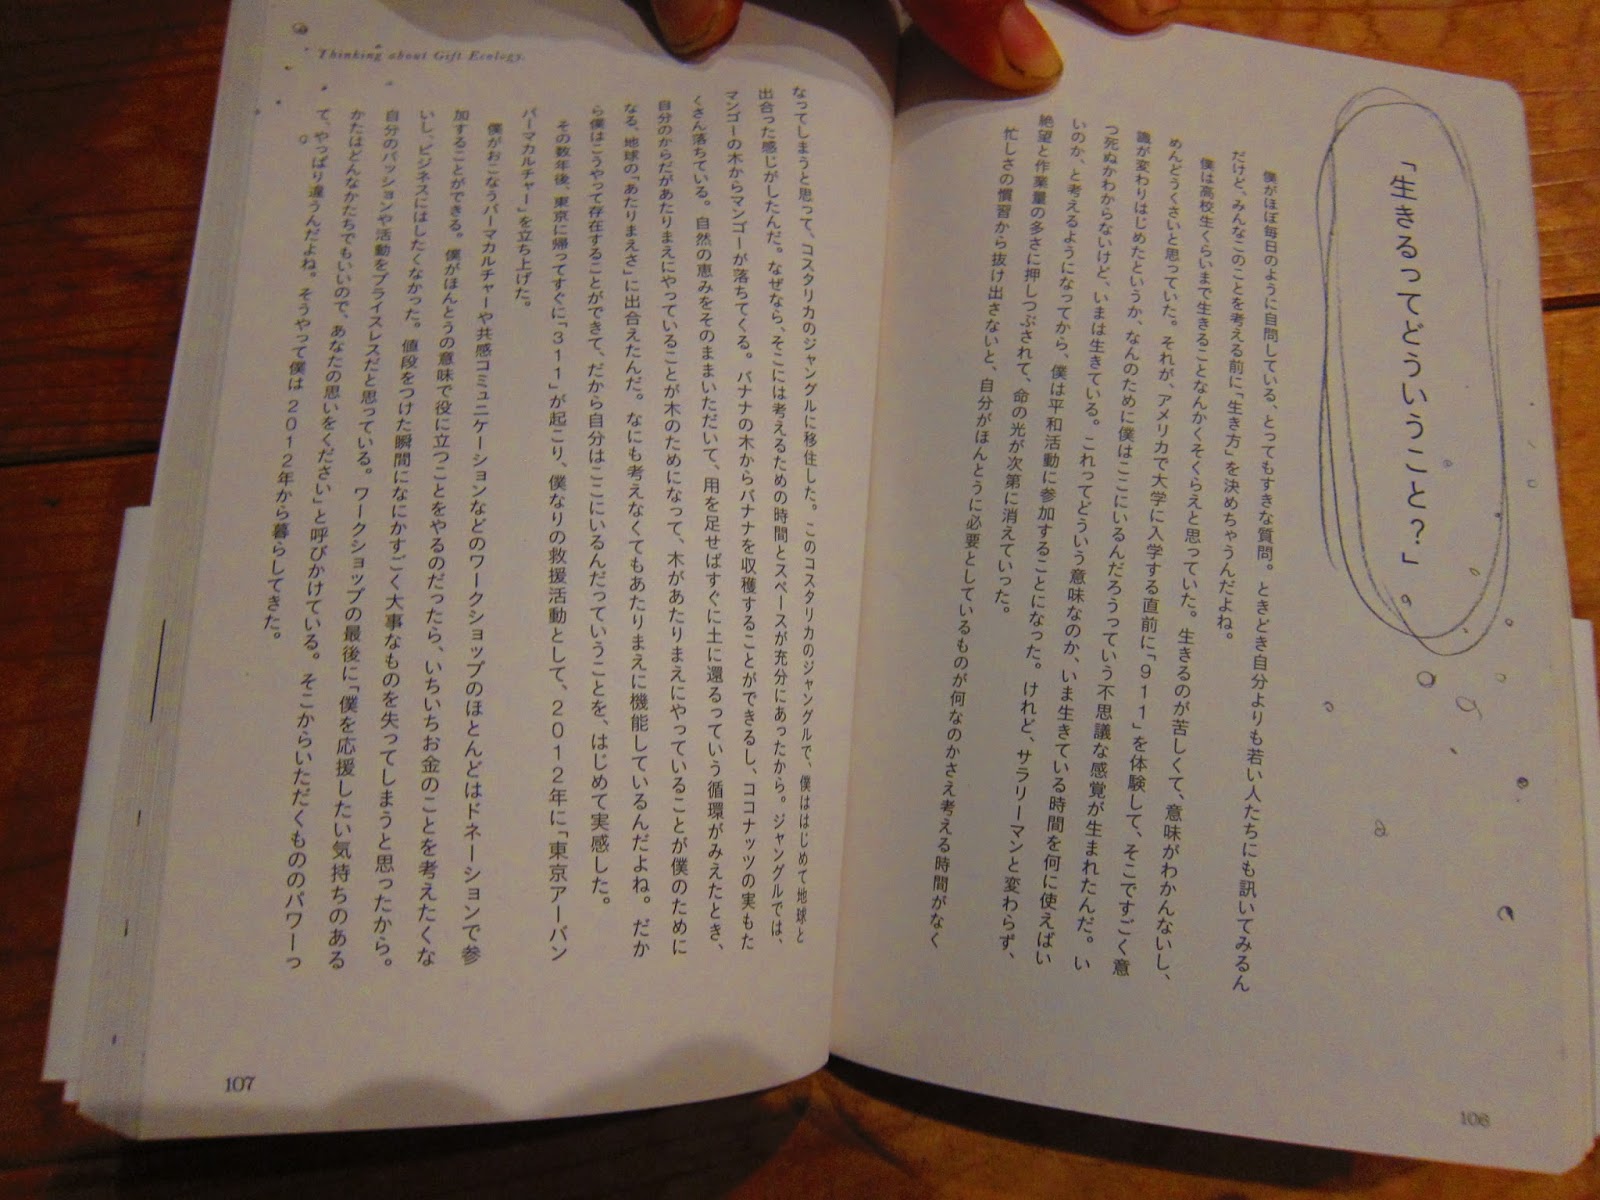 「生きるってどういうこと？」
僕がほぼ毎日のように自問している、とってもすきな質問。ときどき自分よりも若い人たちにも訊いてみるん
だけど、みんなこのことを考える前に「生き方」を決めちゃうんだよね。
僕は高校生くらいまで生きることなんかくそくらえと思っていた。生きるのが苦しくて、意味がわかんないし、
めんどうくさいと思っていた。それが、アメリカで大学に入学する直前に「９１１」を体験して、そこですごく意
識が変わりはじめたというか、なんのために僕はここにいるんだろうっていう不思議な感覚が生まれたんだ。い
つ死ぬかわからないけど、いまは生きている。これってどういう意味なのか、いま生きている時間を何に使えばい
いのか、と考えるようになってから、僕は平和活動に参加することになった。けれど、サラリーマンと変わらず、
絶望と作業量の多さに押しつぶされて、命の光が次第に消えていった。
忙しさの慣習から抜け出さないと、自分がほんとうに必要としているものが何なのかさえ考える時間がなく
106
Thinking about Gift Ecology.
なってしまうと思って、コスタリカのジャングルに移住した。このコスタリカのジャングルで、僕ははじめて地球と
出合った感じがしたんだ。なぜなら、そこには考えるための時間とスペースが充分にあったから。ジャングルでは、
マンゴーの木からマンゴーが落ちてくる。バナナの木からバナナを収穫することができるし、ココナッツの実もた
くさん落ちている。自然の恵みをそのままいただいて、用を足せばすぐに土に還るっていう循環がみえたとき、
自分のからだがあたりまえにやっていることが木のためになって、木があたりまえにやっていることが僕のために
なる、地球の「あたりまえさ」に出合えたんだ。なにも考えなくてもあたりまえに機能しているんだよね。だか
ら僕はこうやって存在することができて、だから自分はここにいるんだっていうことを、はじめて実感した。
その数年後、東京に帰ってすぐに「３１１」が起こり、僕なりの救援活動として、２０１２年に「東京アーバン
パーマカルチャー」を立ち上げた。
僕がおこなうパーマカルチャーや共感コミュニケーションなどのワークショップのほとんどはドネーションで参
加することができる。僕がほんとうの意味で役に立つことをやるのだったら、いちいちお金のことを考えたくな
いし、ビジネスにはしたくなかった。値段をつけた瞬間になにかすごく大事なものを失ってしまうと思ったから。
自分のパッションや活動をプライスレスだと思っている。ワークショップの最後に「僕を応援したい気持ちのある
かたはどんなかたちでもいいので、あなたの思いをください」と呼びかけている。そこからいただくもののパワーっ
て、やっぱり違うんだよね。そうやって僕は２０１２年から暮らしてきた。
107